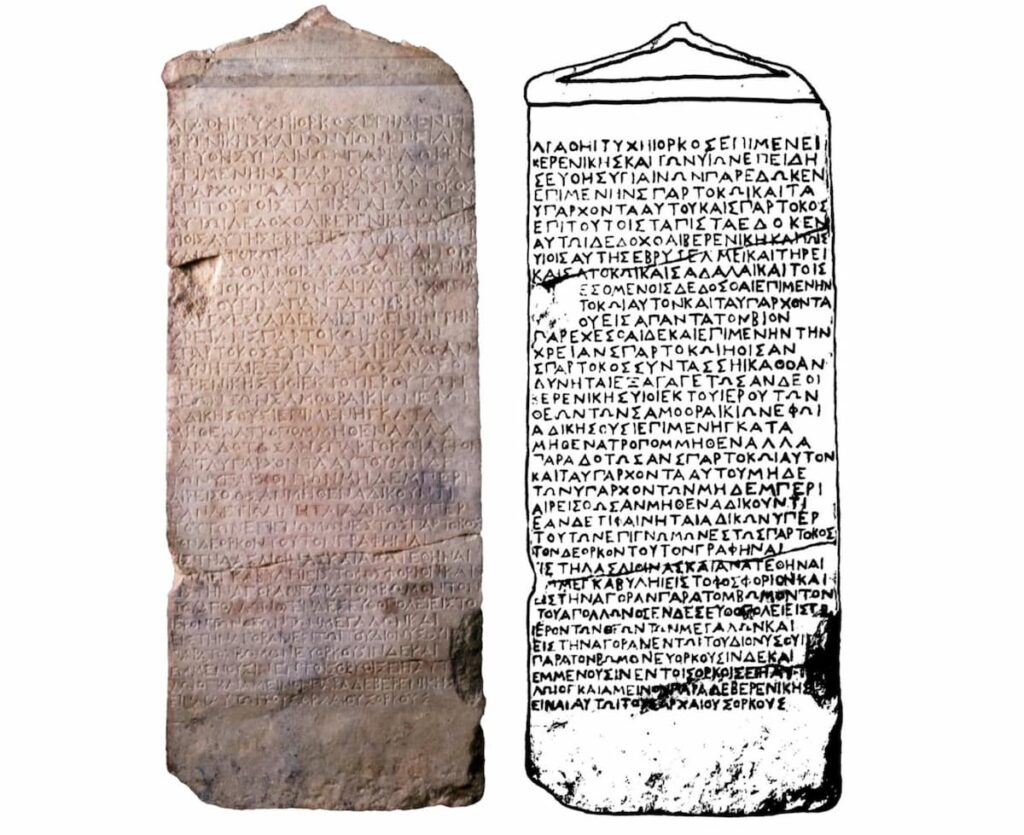 ΑΓΑΘΗΙΤΥΧΗΙΟΡΚΟΣΕΠΙΜΕΝΕΙ
ΒΕΡΕΝΙΚΗΣΚΑΙΤΩΝΥΙΩΝΕΠΕΙΔΗ
ΣΕΥΘΗΣΥΓΙΑΙΝΩΝΠΑΡΕΔΩΚΕΝ
ΕΠΙΜΕΝΗΝΣΠΑΡΤΟΚΩΙΚΑΙΤΑ
ΥΠΑΡΧΟΝΤΑΑΥΤΟΥΚΑΙΣΠΑΡΤΟΚΟΣ
ΕΠΙΤΟΥΤΟΙΣΤΑΠΙΣΤΑΕΔΟΚΕΝ
ΑΥΤΩΙΔΕΔΟΧΘΑΙΒΕΡΕΝΙΚΗΚΑΙ
ΥΙΟΙΣΑΥΤΗΣΕΒΡΥΤΕΛΜΕΙΚΑΙΤΗΡΕΙ
ΚΑΙΣΑΤΟΚΩΙΚΑΙΣΑΔΑΛΑΙΚΑΙΤΟΙΣ
ΕΣΟΜΕΝΟΙΣΔΕΔΟΣΘΑΙΕΠΙΜΕΝΗΝ
ΤΟΚΩΙΑΥΤΟΝΚΑΙΤΑΥΠΑΡΧΟΝΤΑ
ΟΥΕΙΣΑΠΑΝΤΑΤΟΝΒΙΟΝ
ΠΑΡΕΧΕΣΘΑΙΔΕΚΑΙΕΠΙΜΕΝΗΝΤΗΝ
ΧΡΕΙΑΝΣΠΑΡΤΟΚΩΙΗΟΙΣΑΝ
ΣΠΑΡΤΟΚΟΣΣΥΝΤΑΣΣΗΙΚΑΘΟΑΝ
ΔΥΝΗΤΑΙΕΞΑΓΑΓΕΤΩΣΑΝΔΕΟΙ
ΒΕΡΕΝΙΚΗΣΥΙΟΙΕΚΤΟΥΙΕΡΟΥΤΩΝ
ΘΕΩΝΤΩΝΣΑΜΟΘΡΑΙΚΙΩΝΕΦΩΙ
ΑΔΙΚΗΣΟΥΣΙΕΠΙΜΕΝΗΓΚΑΤΑ
ΜΗΘΕΝΑΤΡΟΠΟΜΜΗΘΕΝΑΛΛΑ
ΠΑΡΑΔΟΤΩΣΑΝΣΠΑΡΤΟΚΩΙΑΥΤΟΝ
ΚΑΙΤΑΥΠΑΡΧΟΝΤΑΑΥΤΟΥΜΗΔΕ
ΤΩΝΥΠΑΡΧΟΝΤΩΝΜΗΔΕΜΠΕΡΙ
ΑΙΡΕΙΣΘΩΣΑΝΜΗΘΕΝΑΔΙΚΟΥΝΤΙ
ΕΑΝΔΕΤΙΦΑΙΝΗΤΑΙΑΔΙΚΩΝΥΠΕΡ
ΤΟΥΤΩΝΕΠΙΓΝΩΜΩΝΕΣΤΩΣΠΑΡΤΟΚΟΣ
ΤΟΝΔΕΟΡΚΟΝΤΟΥΤΟΝΓΡΑΦΗΝΑΙ
ΕΙΣΤΗΛΑΣΔΙΘΙΝΑΣΚΑΙΑΝΑΤΕΘΗΝΑΙ
ΕΜΜΕΓΚΑΒΥΛΗΙΕΙΣΤΟΦΟΣΦΟΡΙΟΝΚΑΙ
ΕΙΣΤΗΝΑΓΟΡΑΝΠΑΡΑΤΟΜΒΩΜΟΝΤΟΝ
ΤΟΥΑΠΟΛΛΩΝΟΣΕΝΔΕΣΕΥΘΟΠΟΛΕΙΕΙΣΤΟ
ΙΕΡΟΝΤΩΝΘΕΩΝΤΩΝΜΕΓΑΛΩΝΚΑΙ
ΕΙΣΤΗΝΑΓΟΡΑΝΕΝΤΩΙΤΟΥΔΙΟΝΥΣΟΥΙ
ΠΑΡΑΤΟΝΒΩΜΟΝΕΥΟΡΚΟΥΣΙΝΔΕΚΑΙ
ΕΜΜΕΝΟΥΣΙΝΕΝΤΟΙΣΟΡΚΟΙΣΕΙΗΑΥΤ
ΛΩΙΟΓΚΑΙΑΜΕΙΝΟΝΠΑΡΑΔΕΒΕΡΕΝΙΚΗΣ
ΕΙΝΑΙΑΥΤΩΙΤΟΥΣΑΡΧΑΙΟΥΣΟΡΚΟΥΣ